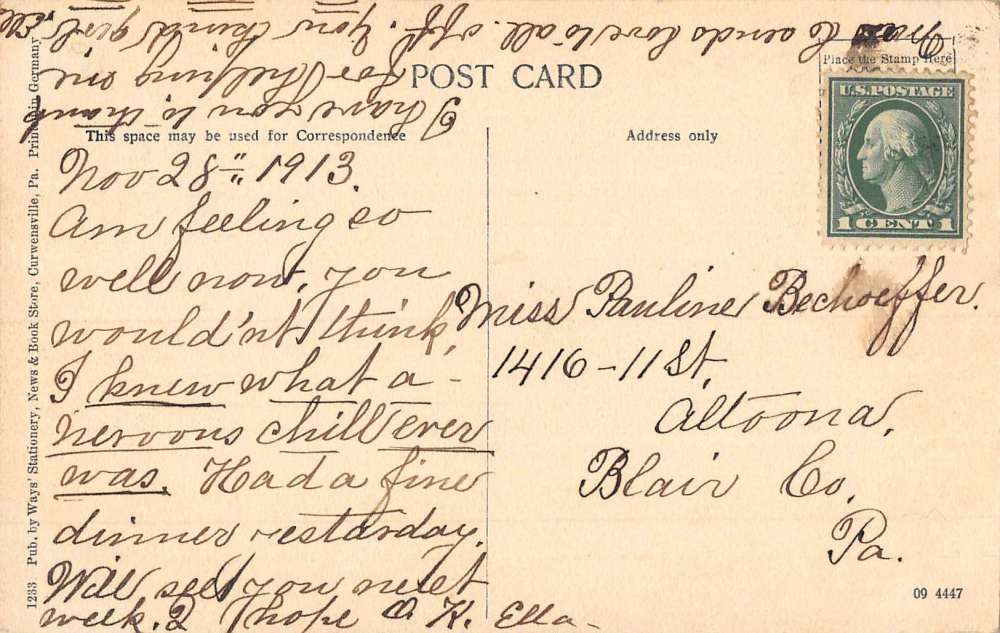 POST CARD
Place the Stamp Here
U.S. POSTAGE
1 CENT 1
This space may be used for Correspondence
Address only
Nov 28" 1913.
Am feeling so
well now, you
would'nt think,
I knew what a
nervous chill ever
was. Had a fine
dinner yestarday.
Will see you next
week. I hope O. K. Ella-
I have you to thank
for helping me
off. You kind girl Ella
Mrs C sends love to all.
Miss Pauline Bechoeffer.
1416-11 St,
Altoona,
Blair Co,
Pa.
1233 Pub. by Ways' Stationery, News & Book Store, Curwensville, Pa. Printed in Germany
09 4447